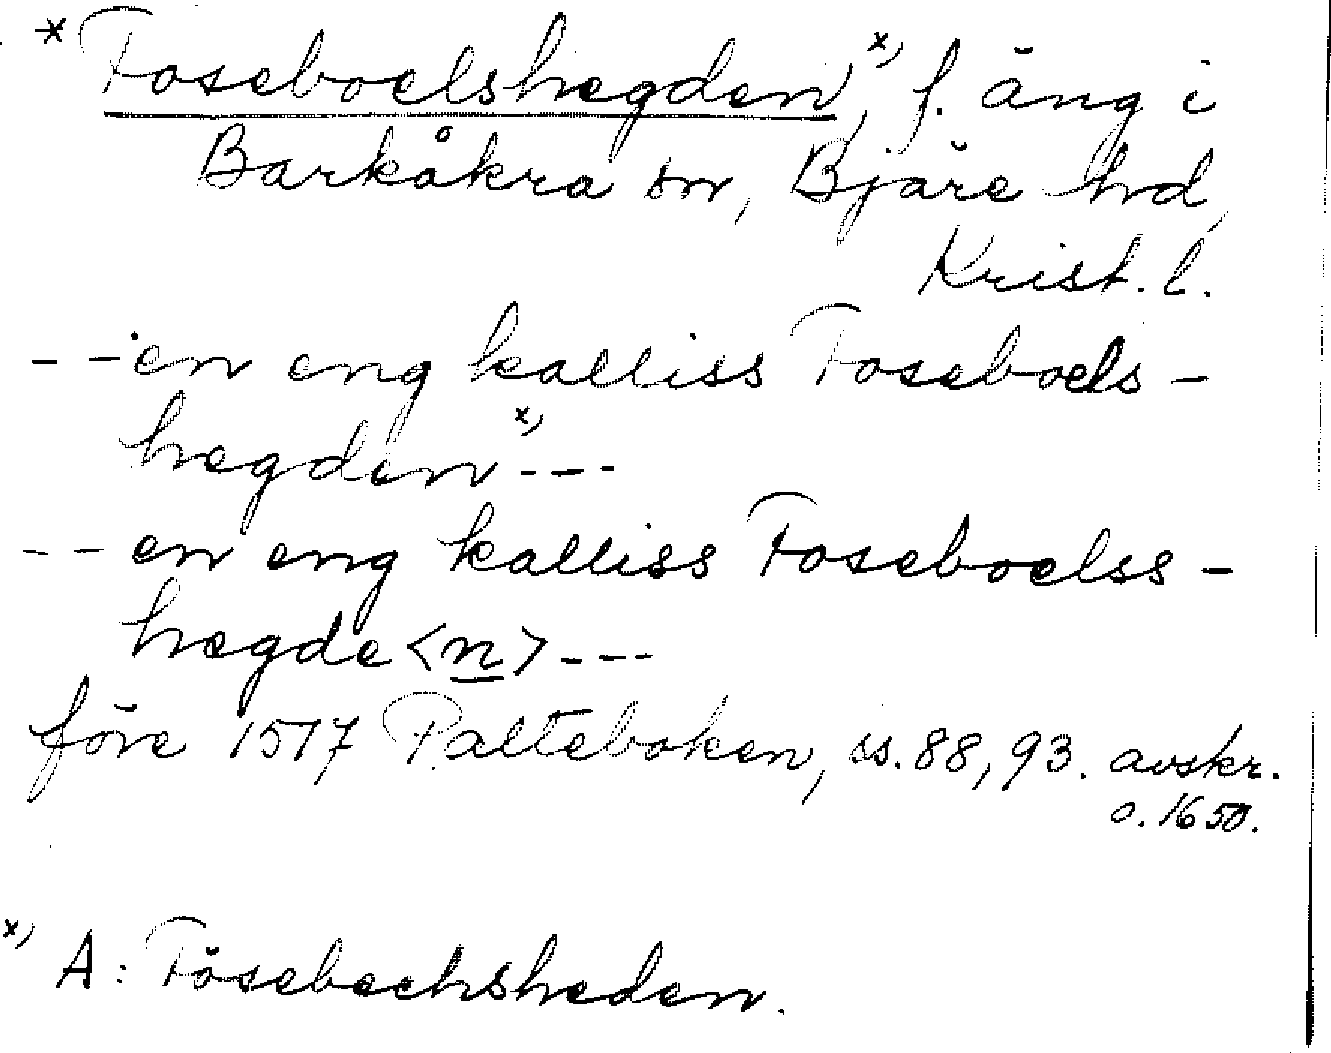 * Foseboelshegden x), f. äng i
Barkåkra sn, Bjäre hd,
Krist. l.
- - en eng kalliss Foseboels-
hegden x) - - -
- - en eng kalliss Foseboelss-
hegde<n> - - -
före 1517 Palteboken, ss. 88, 93. avskr.
o. 1650.
x) A: Fosebechsheden.